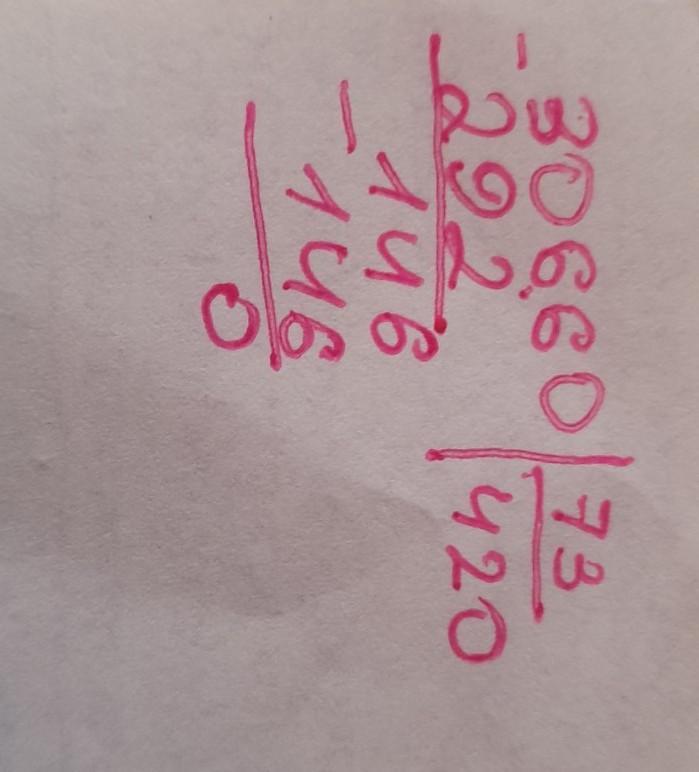 -30660 | 73
292 | 420
-146
146
0